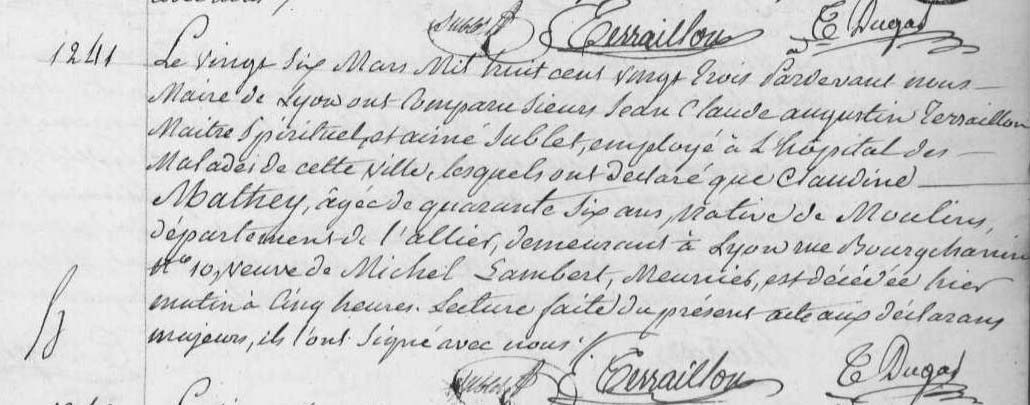 Sublet Terraillon E Dugas
1241
Le vingt six Mars Mil huit cent vingt trois Pardevant nous
Maire de Lyon ont Comparu Sieurs Jean Claude augustin Terraillon
Maitre Spirituel, et aimé Sublet, employé à L'hôpital des
Malades de cette ville, lesquels ont déclaré que Claudine
Mathey, âgée de quarante six ans, Native de Moulins,
département de l'allier, demeurant à Lyon rue Bourgchanin
N° 10, veuve de Michel Lambert, Meunier, est décédée hier
matin à Cinq heures. Lecture faite du présent acte aux déclarans
majeurs, ils l'ont Signé avec nous.
Sublet Terraillon E Dugas